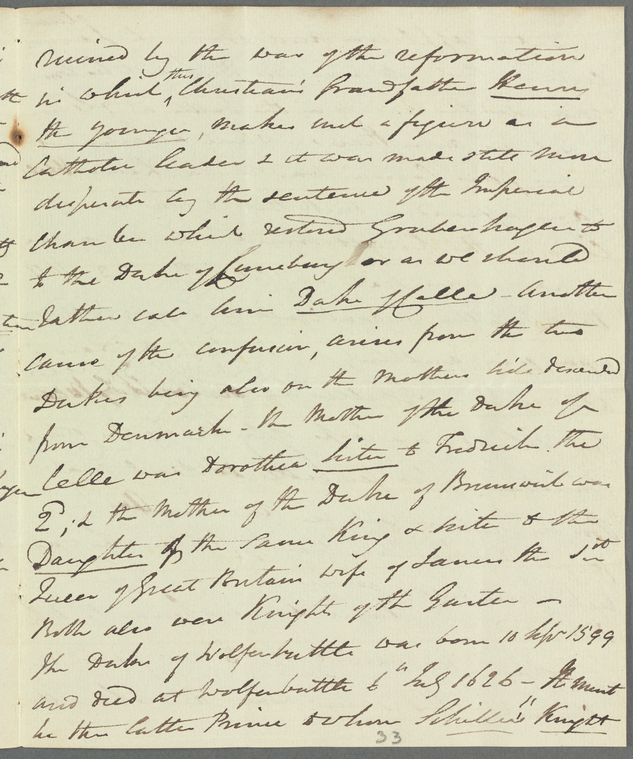 ruined by the war of the reformation
in which this Christian's Grandfather Henry
the younger, makes such a figure as a
Catholic leader & it was made still more
desperate by the sentence of the Imperial
Chamber which restored Grubenhagen to
to the Duke of Luneburg or as we should
rather call him Duke of Celle - Another
cause of the confusion, arises from the two
Dukes being also on the Mothers side descended
from Denmark - the Mother of the Duke of
Celle was Dorothea sister to Fredrick the
2d; & the Mother of the Duke of Brunswick was
Daughter of the same King & sister to the
Queen of Great Britain wife of James the 1st
Both also were Knights of the Garter -
the Duke of Wolfenbuttle was born 10 Sepr 1599
and died at Wolfenbuttle 6th July 1626 - It must
be the latter Prince to whom Schiller's Knight
33